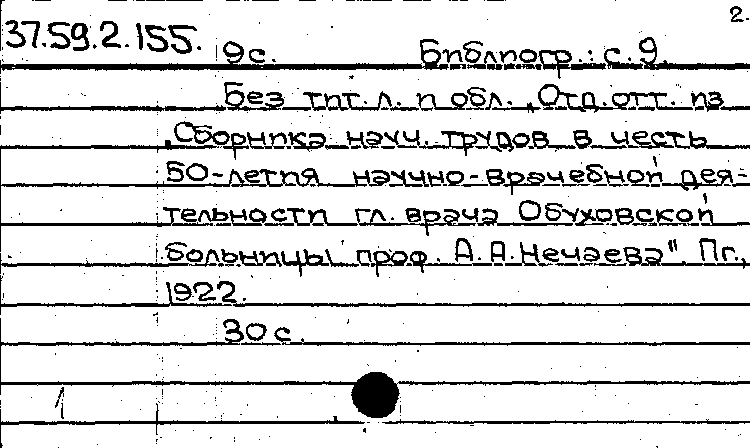 2.
37.59.2.155. 9с. Библиогр.: с. 9.
Без тит. л. и обл. „Отд. отт. из
„Сборника науч. трудов в честь
50-летия научно-врачебной дея-
тельности гл. врача Обуховской
больницы проф. А. А. Нечаева". Пг.,
1922.
30 с.
1